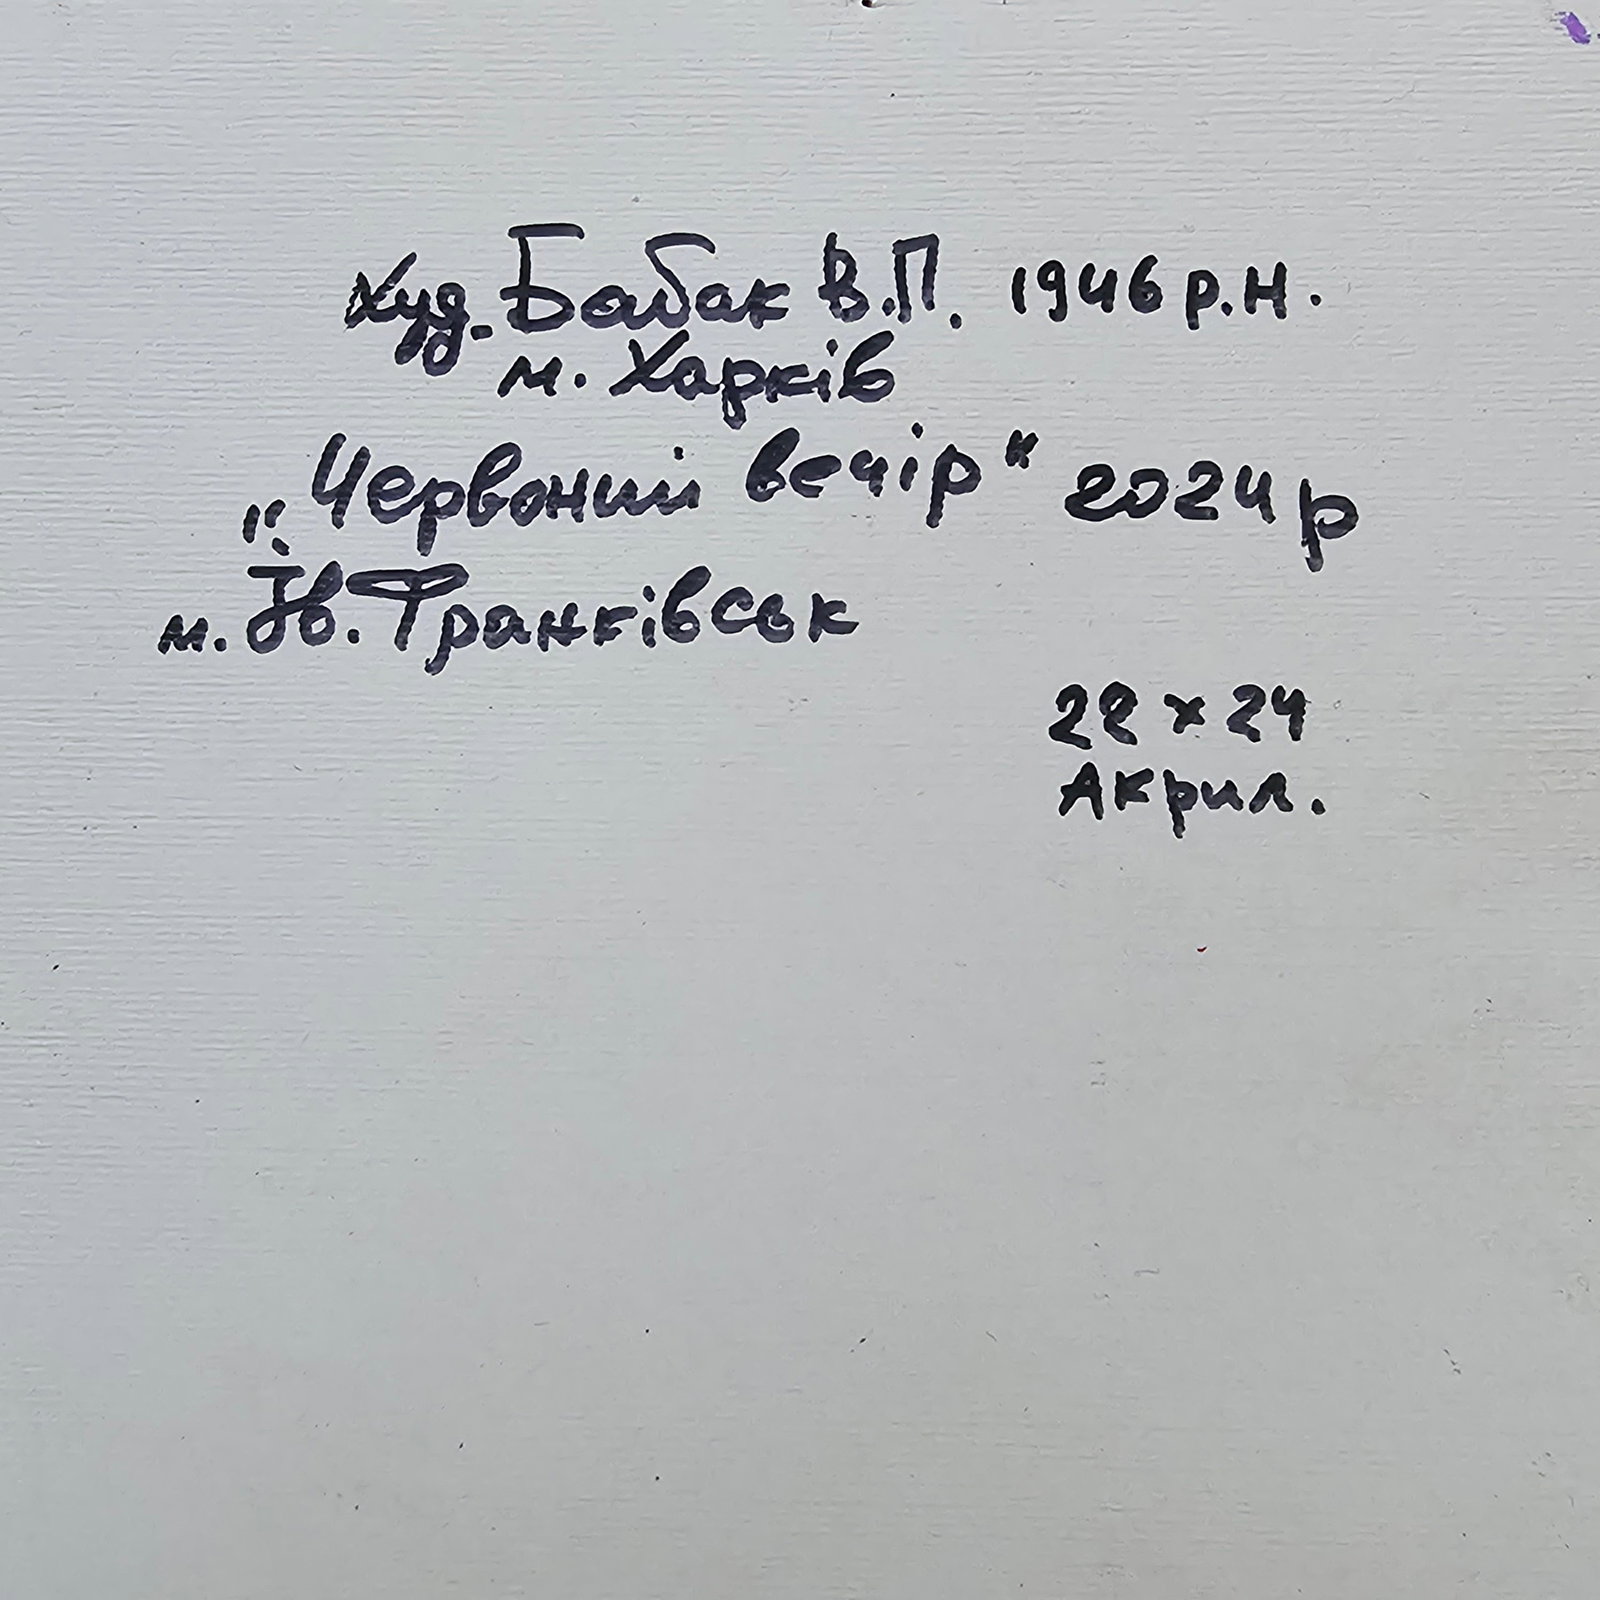 Худ. Бабак В.П. 1946 р.н.
м. Харків
"Червоний вечір" 2024 р
м. Ів. Франківськ
22 x 24
Акрил.